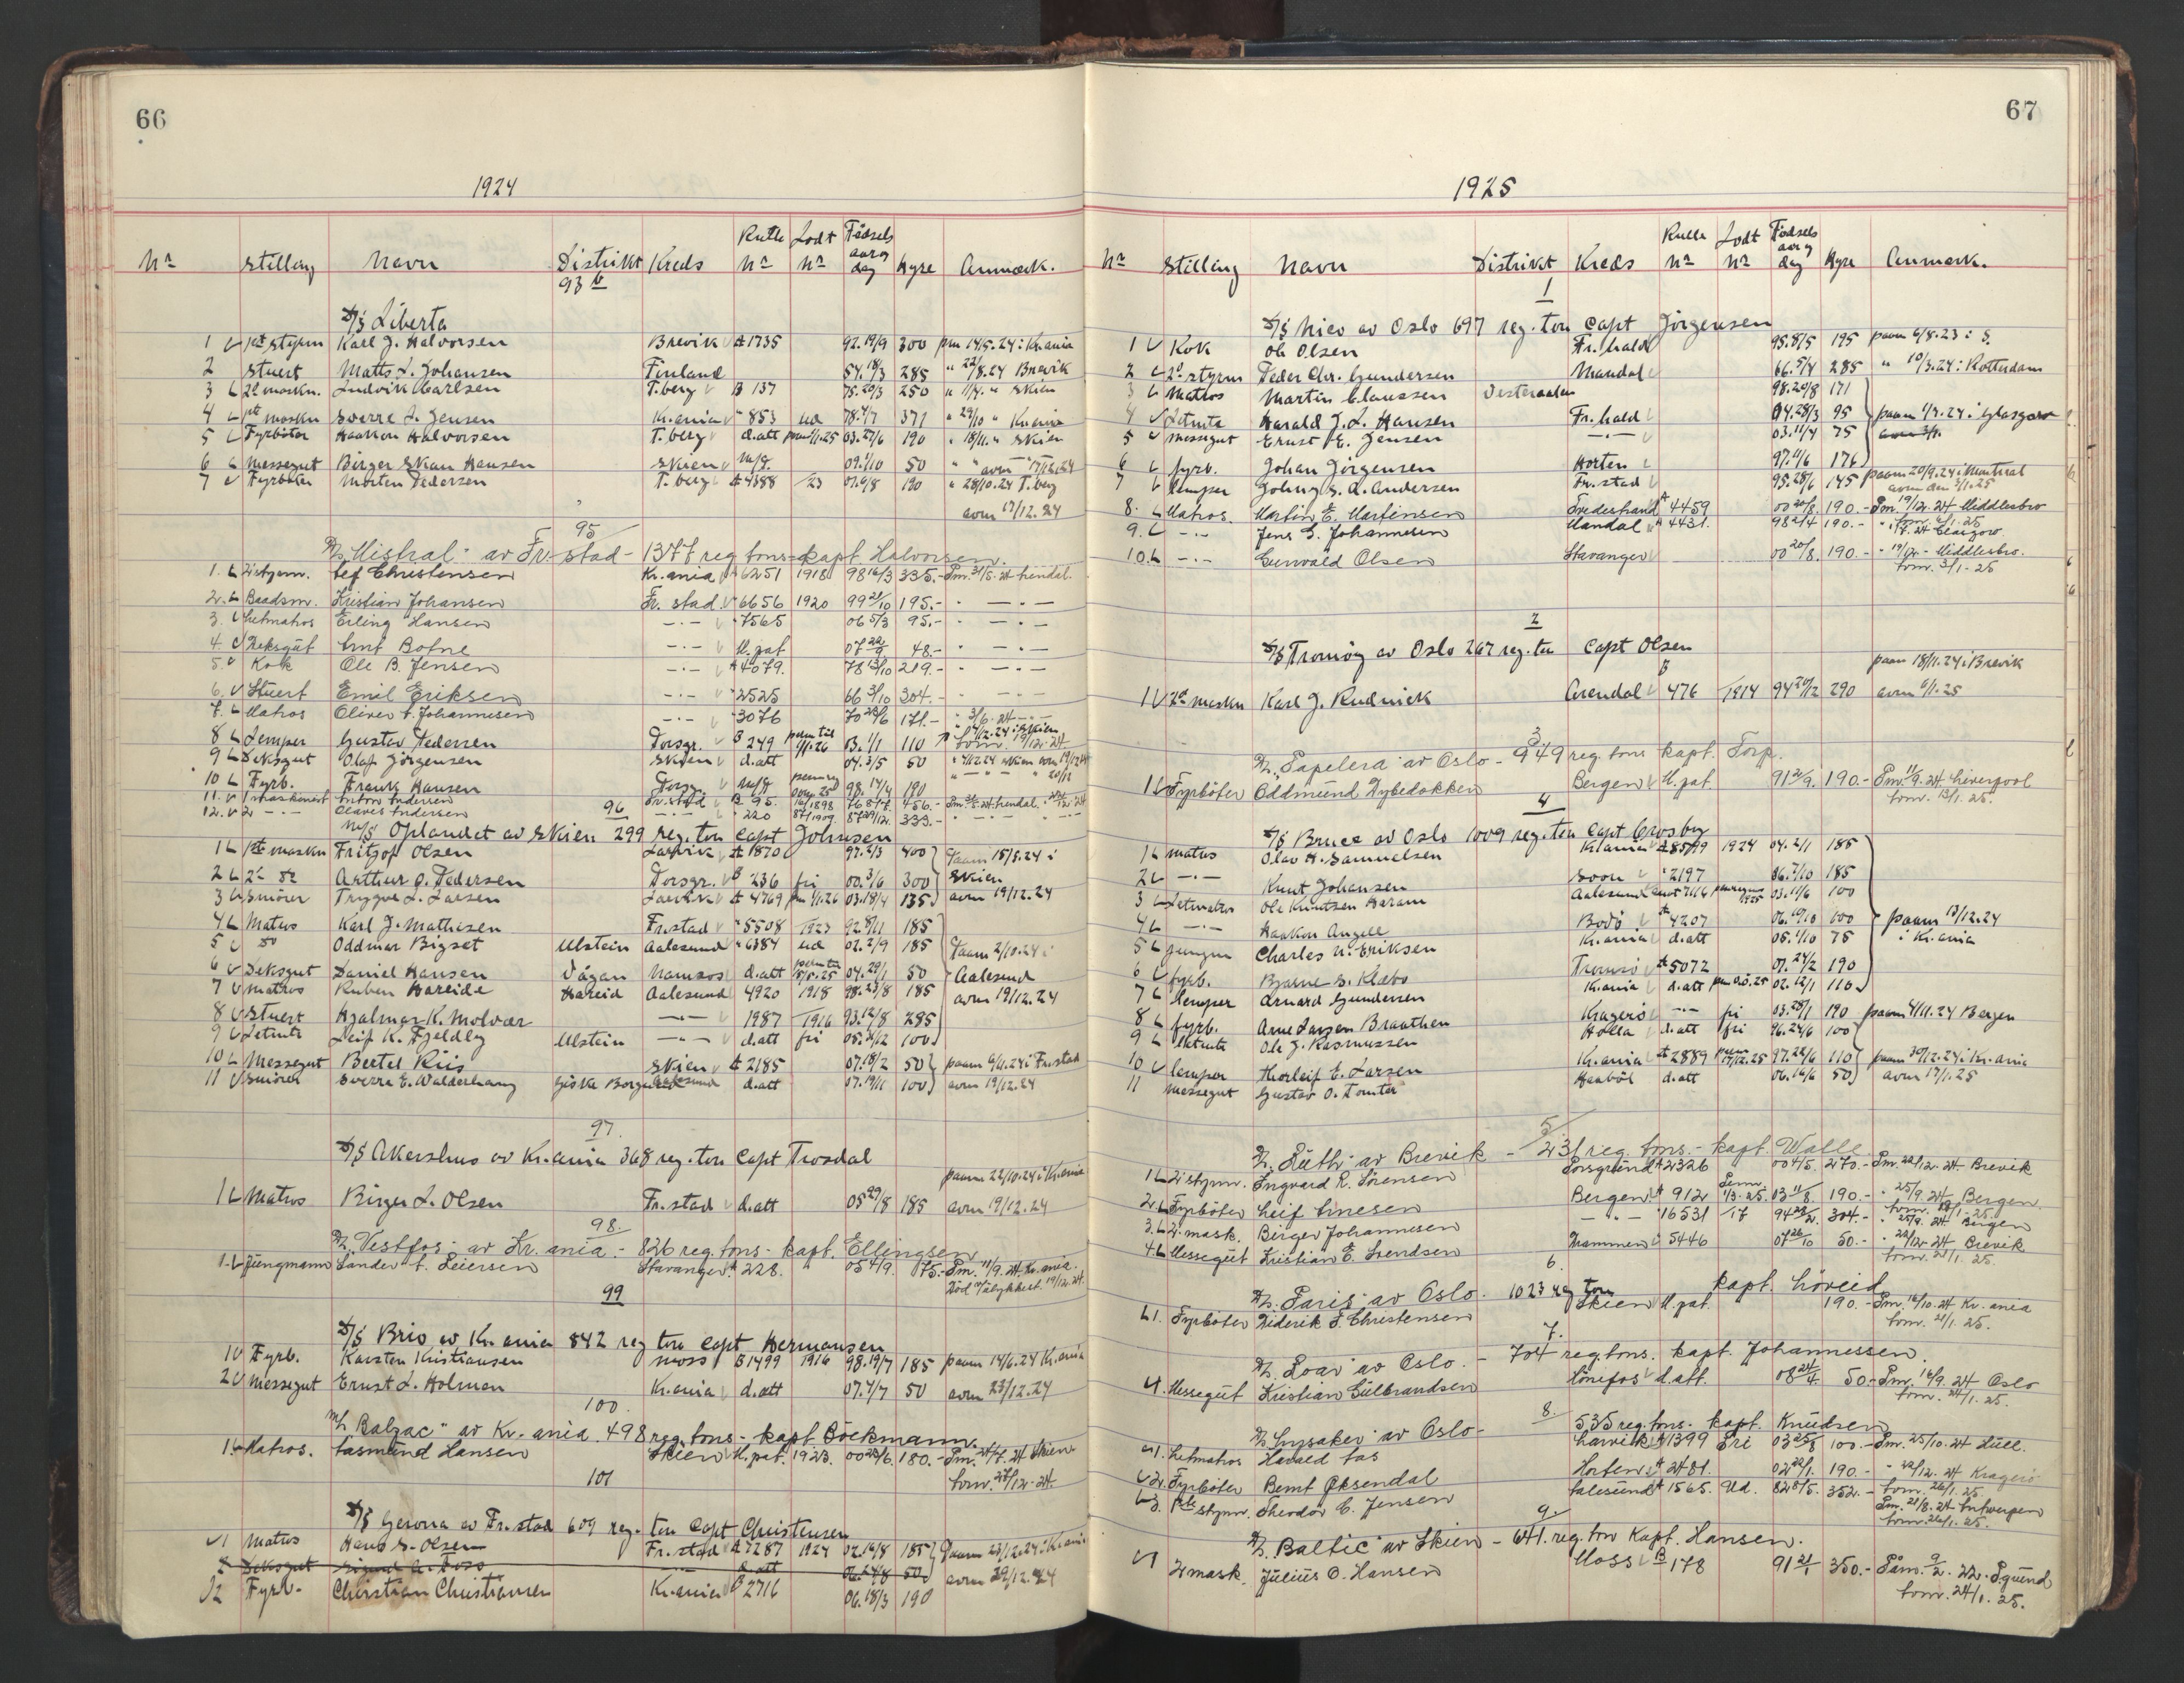 66
1924
Nr Stilling Navn Distrikt Kreds Rulle Nr Lodt Nr Fødsels aar og dag Hyre Anmærk.
93 b
D/S Liberta
1 1st styrm Karl J. Halvorsen Brevik A 1735 92.19/9 300 pm 14/5.24 i Kr.ania
2 Stuert Matts L. Johansen Finland 54.18/3 285 " 22/8.24 Brevik
3 2d maskn. Ludvik Carlsen T.berg B 137 75.20/3 250 " 11/4. " Skien
4 1st maskn Sverre L. Jensen Kr.ania " 853 ud 78.4/7 371 " 29/10 " Kr.ania
5 Fyrböter Haakon Halvorsen T.berg d.att 03.27/6 190 " 18/11. " Skien
6 Messegut Birger Skau Hansen Skien 09.1/10 50 " " avm 17/12.24
7 Fyrböter Morten Pedersen T.berg A 4388 23 01.6/8 190 " 28/10.24 T.berg
avm 17/12.24
95
D/S "Mistral" av Fr.stad - 1377 reg tons - kapt. Halvorsen.
1. 2. styrm. Leif Christensen Kr.ania A 6251 1918 98 16/3 335.- Pm. 31/5.24 Arendal.
2. Baadsm. Kristian Johansen Fr.stad " 6656 1920 99 21/10 195.- " — " —
3. Letmatros Erling Hansen — " — " 7565 06 5/3 95.- " — " —
4. Deksgut Arnt Botne — " — U.pat 07 22/9 48.- " — " —
5. Kok Ole B. Jensen — " — A 4079. 78 13/10 219.- " — " —
6. Stuert Emil Eriksen — " — " 2525 66 3/10 304.- " — " —
7. Matros Oliver A. Johannesen — " — " 3076 70 23/6 171.- " 3/6.24 — " —
8 Lemper Gustav Pedersen Porsgr. B 249 pm til 1/1.26 03.1/1 110 " 4/12.24 i Skien
9 Deksgut Olaf Jörgensen Skien d.att 04.3/5 50 " 4/12.24 Skien avm 19/12.24
10 Fyrb. Frank Hansen Porsgr. 98.14/4 190
11. 1 maskinist Anton Andersen Fr.stad B 95. 456.- Pm. Arendal.
12. 2 — " — Olaves Andersen — " — " 220 333.-
96
M/S Oplandet av Skien 299 reg. ton Capt Johnsen
1 1ste maskn Fritjof Olsen Larvik A 1870 97.2/3 400 Paam 15/8.24 i
2 2d do Arthur O. Pedersen Porsgr. B 236 fri 00.3/6 300 Skien
3 Smörer Trygve L. Larsen Larvik A 4769 pm 1/1.26 03.18/4 135 avm 19/12.24
4 Matros Karl J. Mathisen Fr.stad " 5508 1923 92.8/11 185
5 do Oddmar Bigset Ulstein Aalesund " 6384 ud 02.2/9 185 Paam 2/10.24 i
6 Deksgut Daniel Hansen Vågan Namsos d.att 04.29/1 50 Aalesund
7 Matros Ruben Hareide Hareid Aalesund 4920 1918 98.23/8 185 avm 19/12.24
8 Stuert Hjalmar K. Molvær — " — 1987 1916 93.12/8 285
9 Letmtr Leif K. Fjeldly Ulstein — " — d.att fri 05.2/12 100
10 Messegut Bertel Riis Skien A 2185 07.18/2 50 paam 6/11.24 i Fr.stad
11 Smörer Sverre E. Walderhaug Giske Borgund Aalesund d.att 07.19/11 100 avm 19/12.24
97.
D/S Akershus av Kr.ania 368 reg. ton Capt Trosdal
paam 22/10.24 i Kr.ania
1 Matros Birger L. Olsen Fr.stad d.att 05 29/8 185 avm 19/12.24
98.
D/S "Vestfos" av Kr.ania - 826 reg. tons - kapt. Ellingsen
1. Jungmann Sander A. Seiersen Stavanger A 228. 05 4/9. 75.- Pm. 11/9.24 Kr.ania.
Död v/ulykkest. 19/12.24.
99
D/S Brio av Kr.ania 842 reg ton Capt Hermansen
1 Fyrb. Karsten Kristiansen Moss B 1499 1916 98.19/7 185 paam 14/6.24 Kr.ania
2 Messegut Ernst L. Holmen Kr.ania d.att 07.4/7 50 avm 23/12.24
100.
M/S "Balzac" av Kr.ania. 498 reg. tons - kapt Böckmann.
1. Matros. Aasmund Hansen Skien U.pat. 1923. 00 23/6. 180.- Pm. 24/7.24 Skien
Avm. 27/12.24.
101
D/S Gerona av Fr.stad 609 reg. ton Capt Christensen
1 Matros Hans S. Olsen Fr.stad A 7287 1924 02.16/8 185 Paam 23/12.24 i Kr.ania
2 Deksgut Sigurd A. Foss d.att 06.24/8 50 avm 29/12.24
2 Fyrb. Christian Christiansen Kr.ania B 2716 06.18/3 190
67
1925
Nr Stilling Navn Distrikt Kreds Rulle Nr Lodt Nr Fødsels aar og dag Hyre Anmærk.
1
D/S Nico av Oslo 697 reg. ton Capt Jörgensen
1 Kok Ole Olsen Fr.hald 95.8/5 195 paam 6/8.23 i S.
2 2d styrm Peder Chr. Gundersen Mandal 66.5/4 285 " 10/3.24 i Rotterdam
3 Matros Martin Claussen Vesteraalen 98.20/8 171
4 Letmtr Harald J. L. Hansen Fr.hald 04.28/3 95 paam 1/9.24 i Glasgow
5 Messegut Ernst E. Jensen — " — 03.11/4 75
6 fyrb. Johan Jörgensen Horten 97.11/6 176
7 lemper Johny S. A. Andersen Fr.stad 95.28/6 145 paam 20/9.24 i Montreal
avm den 3/1.25
8. Matros. Martin E. Martinsen Tvedestrand A 4459 00 20/8. 190.- Pm. 19/12.24 Middlesbro
9. — " — Jens G. Johannesen Mandal " 4431. 98 2/4 190.- Glasgow
10. — " — Gunvald Olsen Stavanger 00 20/8. 190.- " 19/12 - Middlesbro.
Avm. 3/1-25
2
D/S Tromöy av Oslo 267 reg. ton Capt Olsen
paam 18/11.24 i Brevik
1 2d maskn Karl J. Rudnick Arendal B 476 1914 94 20/12 290 avm 6/1.25
3
D/S "Papelera" av Oslo - 949 reg. tons kapt. Torp.
1 Fyrböter Oddmund Dybedokken Bergen U.pat. 91 21/9. 190.- Pm. 11/9.24 Liverpool
Avm. 13/1.25.
4
D/S Bruce av Oslo 1009 reg. ton Capt Crosby
1 Matros Olav H. Samuelsen Kr.ania A 8599 1924 04.2/1 185
2 — " — Knut Johansen Soon " 2197 86.7/10 185
3 Letmatros Ole Knutsen Haram Aalesund 7116 03.11/6 100
4 — " — Haakon Angell Bodö A 4207 06.19/10 100 paam 13/12.24
5 Jungm Charles N. Eriksen Kr.ania d.att 05.1/10 75 i Kr.ania
6 fyrb. Bjarne S. Klæbo Tromsö A 5072 01.24/2 190
7 lemper Arnard Gundersen Kr.ania d.att 02.12/1 110
8 fyrb. Arne Larsen Braathen Kragerö — " — fri 03.28/1 190 paam 4/11.24 Bergen
9 Letmtr Ole J. Rasmussen Holla d.att fri 96.24/6 100
10 lemper Thorleif E. Larsen Kr.ania A 2889 97.22/6 110 paam 30/12.24 i Kr.ania
11 Messegut Gustav O. Tomter Haaböl d.att 06.16/6 50 avm 17/1.25
5
D/S "Ruth" av Brevik - 231 reg. tons. - kapt. Walle
1 2. styrm. Ingvard R. Sörensen Porsgrund A 2326 00 4/5. 270.- Pm. 22/12.24 Brevik
2. Fyrböter Leif Arnesen Bergen A 912 03 11/8 190.- " 25/9.24 Bergen.
3. 2. mask. Birger Johannesen — " — " 16531 17 94 23/2. 304.- " 25/9.24 Bergen
4. Messegut Kristian E. Svendsen Drammen " 5446 07 26/10 50.- " 22/12.24 Brevik
Avm. 21/1.25.
6.
D/S "Paris" av Oslo. 1023 reg ton kapt. Höveid
1. Fyrböter Diderik F. Christensen Skien U.pat. 190.- Pm. 16/10.24 Kr.ania
Avm. 21/1.25.
7.
D/S "Roar" av Oslo. - 704 reg. tons. kapt. Johannessen.
1. Messegut Kristian Gulbrandsen Hönefos d.att. 08 24/4. 50.- Pm. 16/9.24 Oslo
Avm. 24/1.25.
8.
D/S "Lysaker" av Oslo - 535 reg. tons. kapt. Knudsen
1. Letmatros Harald Aas Larvik A 1399 Fri 03 25/8 100.- Pm. 25/10.24 Hull.
2. Fyrböter Bernt Øksendal Horten A 2481. 02 22/1. 190.- " 22/12.24 Kragerö
Avm. 26/1.25.
3. 1ste styrm. Theodor C. Jensen Aalesund A 1565. Ud. 82 8/5. 352.- Pm. 21/8.24 Antwerpen
Avm. 26/1.25.
9.
D/S "Baltic" av Skien - 641. reg. ton Kapt. Hansen.
1 2 mask. Julius O. Hansen Moss B 178 91 21/1 350.- Påm. 9/2.22. P.grund
Avm. 24/1.25.